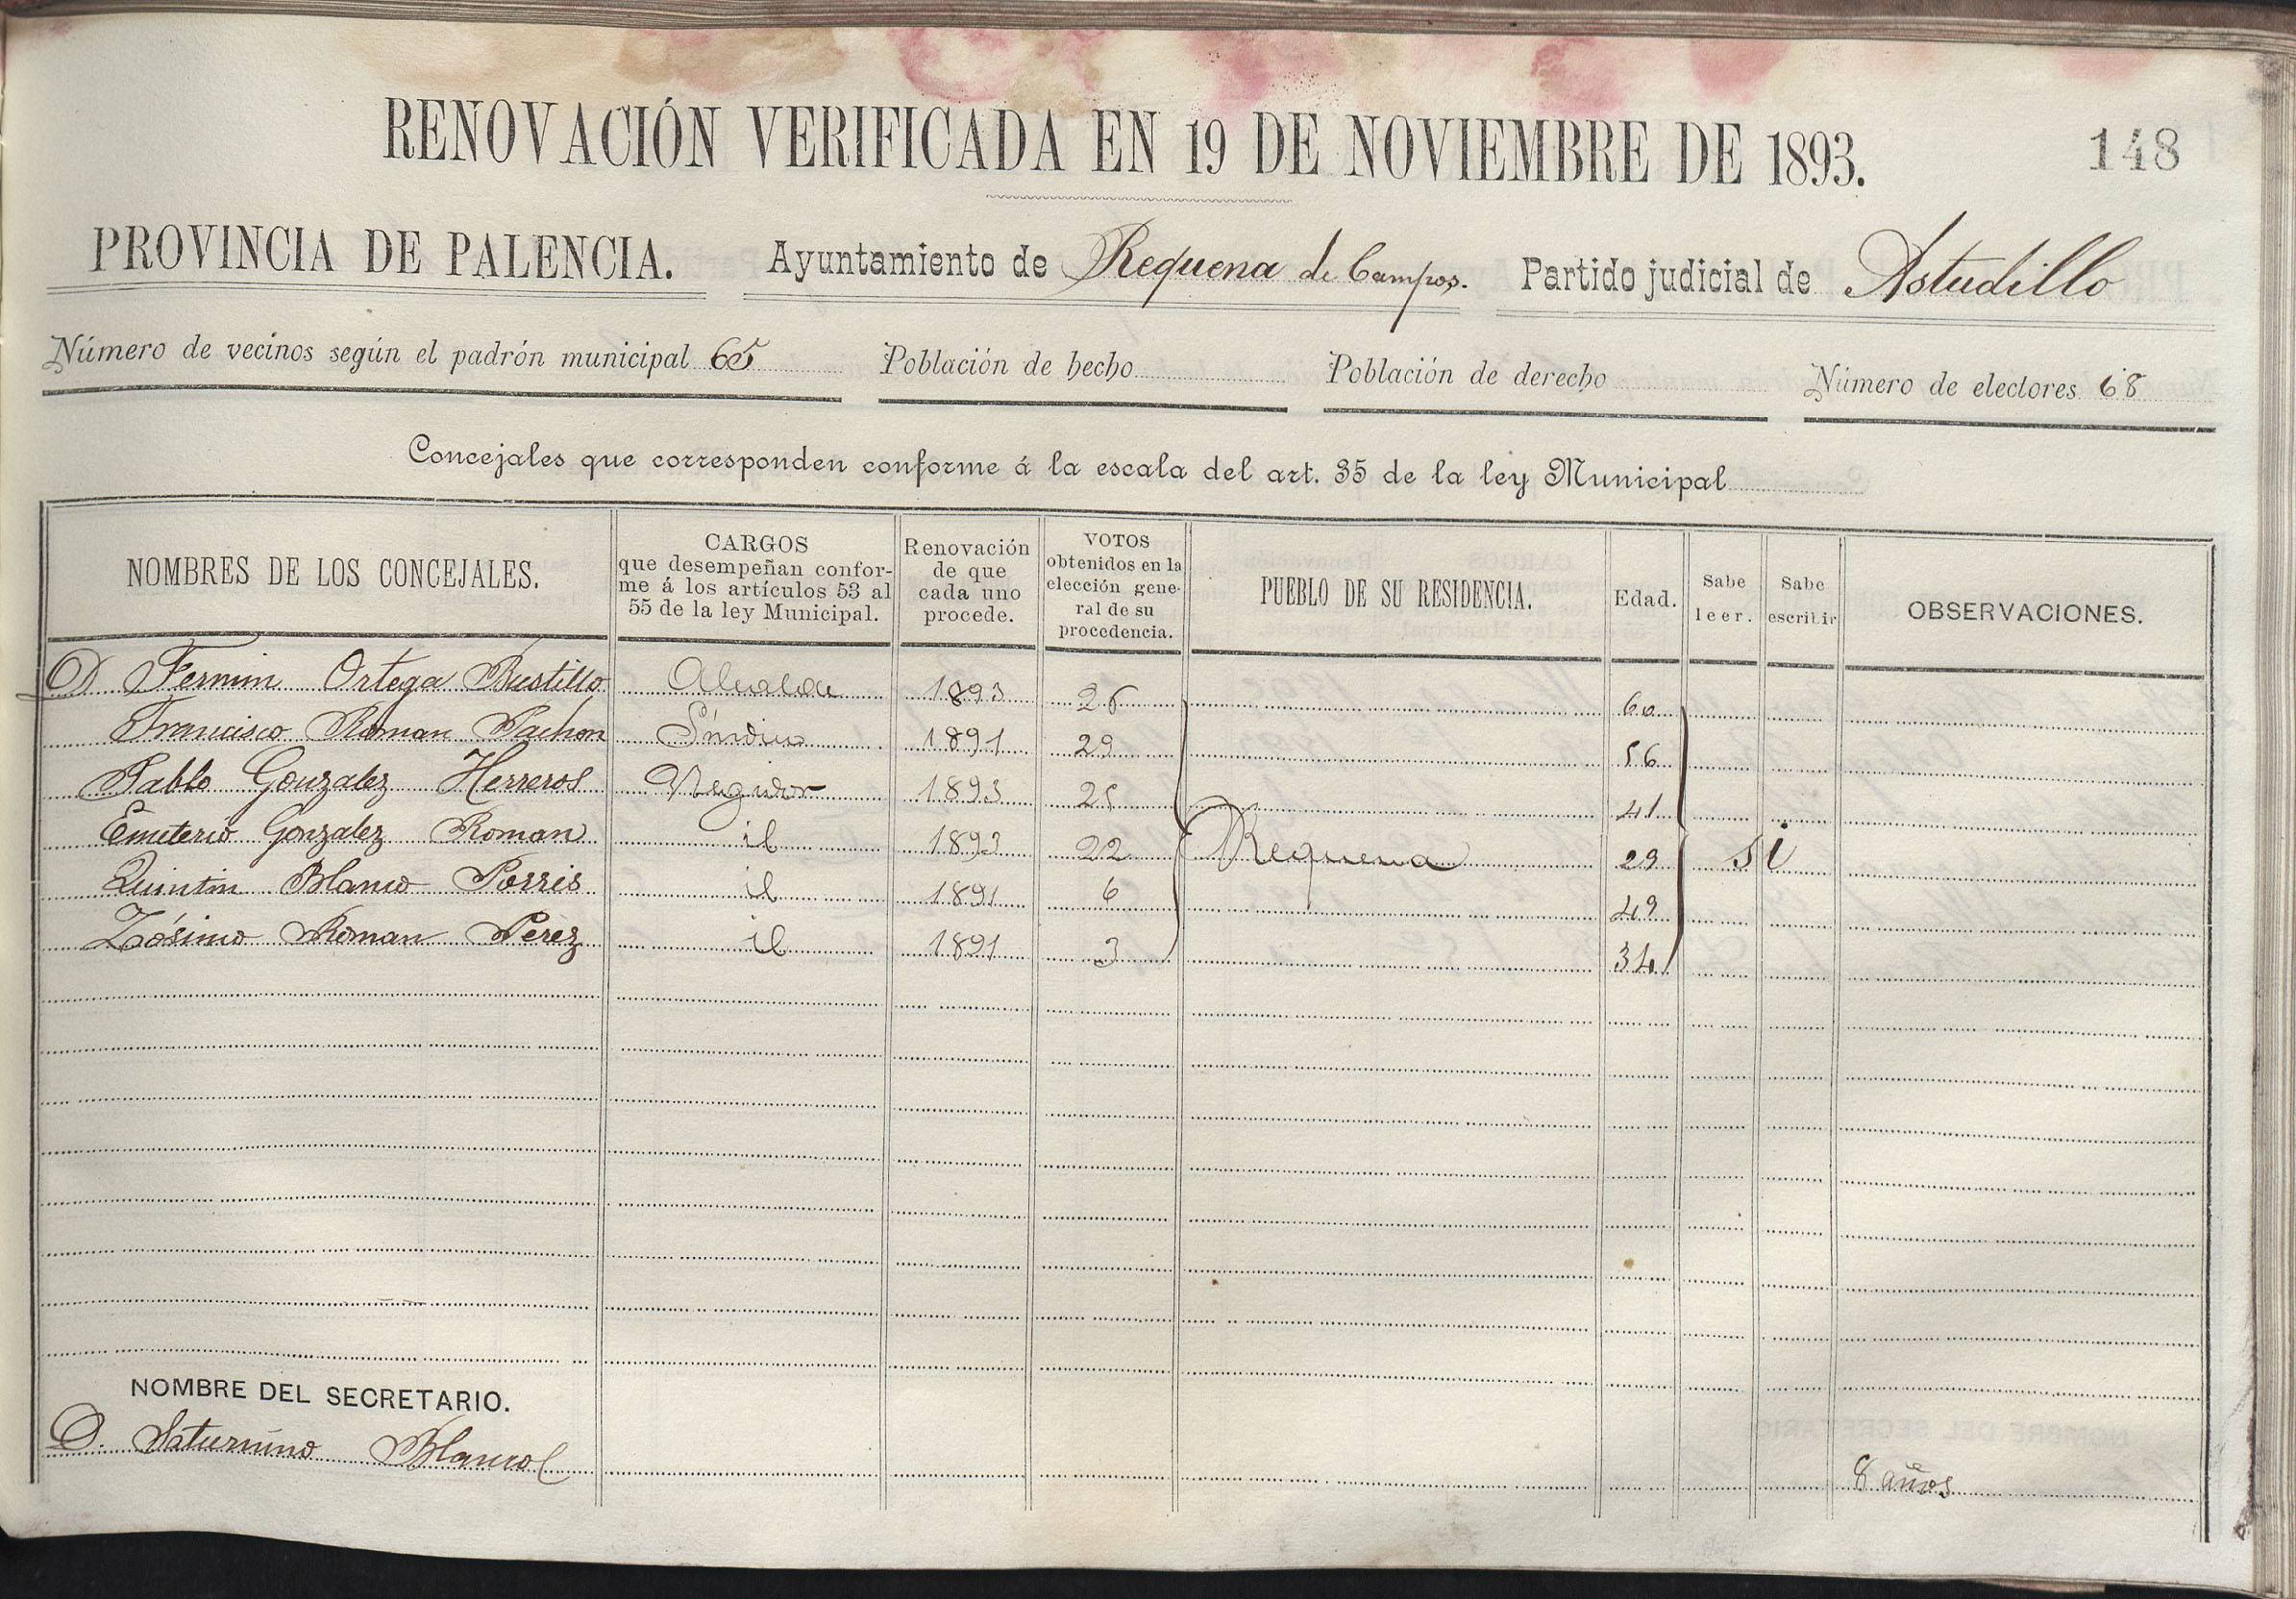 RENOVACIÓN VERIFICADA EN 19 DE NOVIEMBRE DE 1893.
148
PROVINCIA DE PALENCIA. Ayuntamiento de Requena de Campos. Partido judicial de Astudillo
Número de vecinos según el padrón municipal 65 Población de hecho Población de derecho Número de electores 68
Concejales que corresponden conforme á la escala del art. 35 de la ley Municipal
NOMBRES DE LOS CONCEJALES.
CARGOS
que desempeñan confor-
me á los artículos 53 al
55 de la ley Municipal.
Renovación
de que
cada uno
procede.
VOTOS
obtenidos en la
elección gene-
ral de su
procedencia.
PUEBLO DE SU RESIDENCIA.
Edad.
Sabe
leer.
Sabe
escribir
OBSERVACIONES.
D Fermin Ortega Bustillo Alcalde 1893 26 60
Francisco Roman Pachon Síndico 1891 29 56
Pablo Gonzalez Herreros Regidor 1893 25 41
Emeterio Gonzalez Roman id 1893 22 Requena 29 si
Quintin Blanco Porris id 1891 6 49
Zósimo Roman Perez id 1891 3 34
NOMBRE DEL SECRETARIO.
D. Saturnino Blanco 8 años